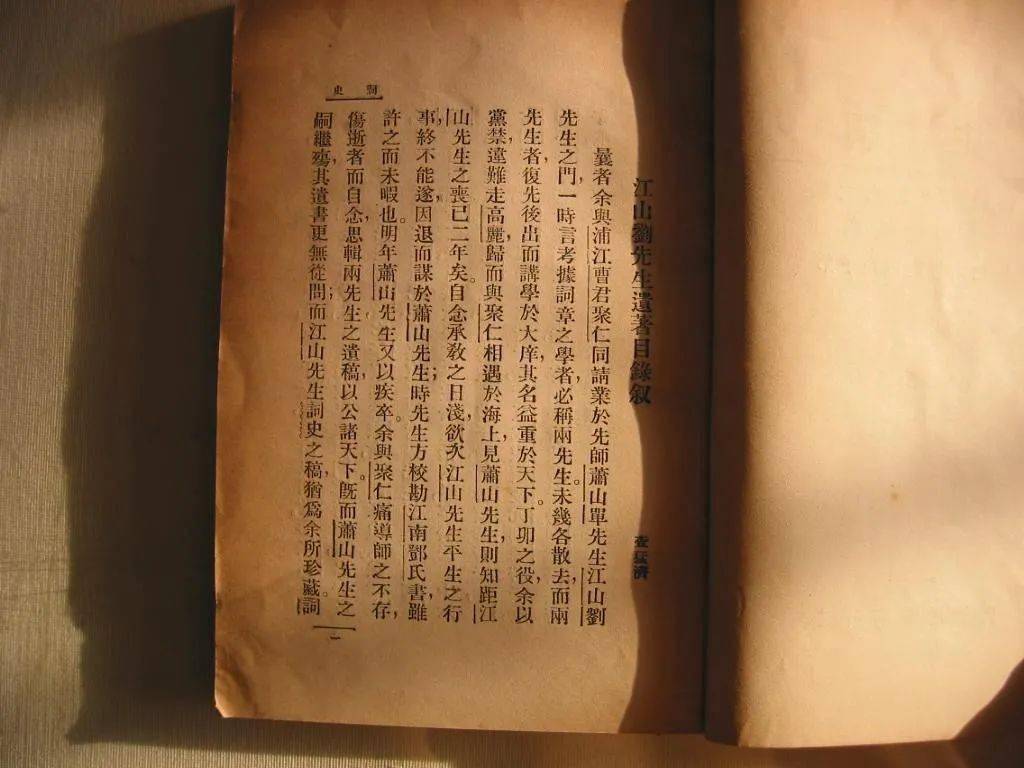 江山劉先生遺著目錄叙
查猛濟
曩者余與浦江曹君聚仁同請業於先師蕭山單先生江山劉
先生之門,一時言考據詞章之學者,必稱兩先生。未幾各散去,而兩
先生者,復先後出而講學於大庠,其名益重於天下。丁卯之役,余以
黨禁,違難走高麗,歸而與聚仁相遇於海上,見蕭山先生,則知距江
山先生之喪,已二年矣。自念承敎之日淺,欲次江山先生平生之行
事,終不能遂,因退而謀於蕭山先生;時先生方校勘江南鄧氏書,雖
許之而未暇也。明年蕭山先生又以疾卒。余與聚仁痛導師之不存,
傷逝者而自念,思輯兩先生之遺稿,以公諸天下。旣而蕭山先生之
嗣繼殤,其遺書更無從問;而江山先生詞史之稿,猶爲余所珍藏。詞
詞史
一